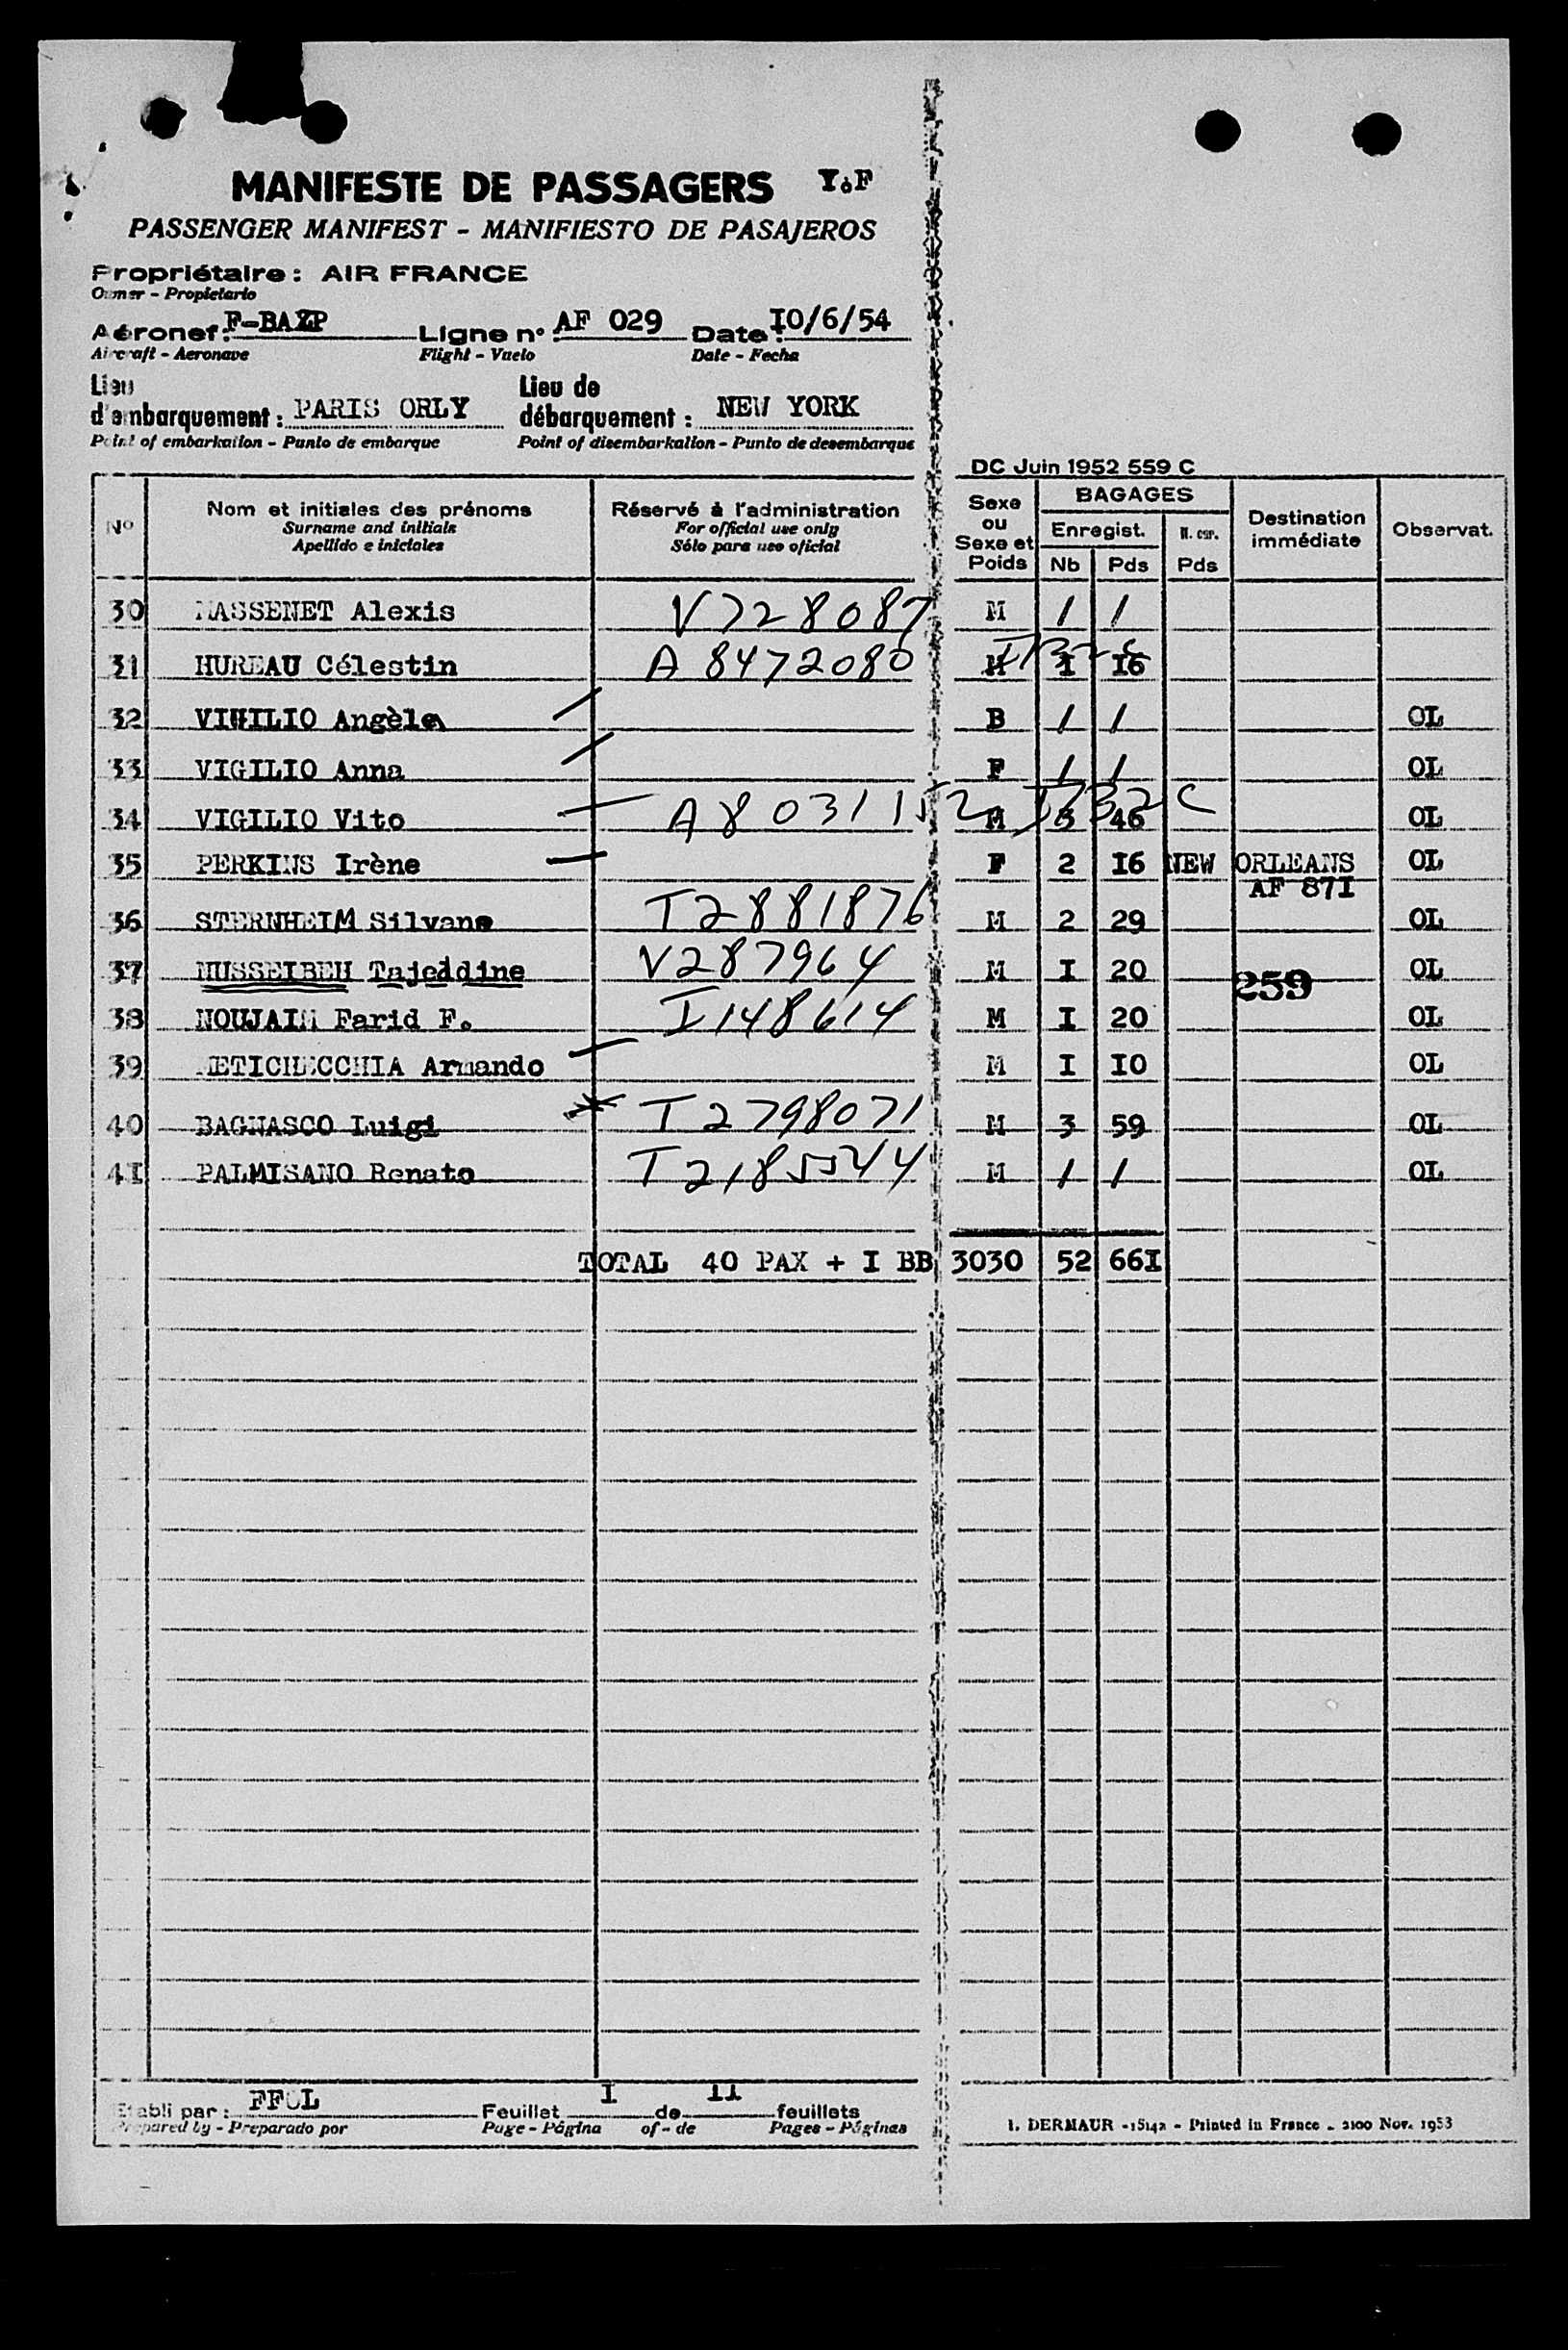 MANIFESTE DE PASSAGERS Y.F
PASSENGER MANIFEST - MANIFIESTO DE PASAJEROS
Propriétaire : AIR FRANCE
Owner - Propietario
Aéronef : F-BAZP Ligne n° AF 029 Date : I0/6/54
Aircraft - Aeronave Flight - Vuelo Date - Fecha
Lieu d'embarquement : PARIS ORLY Lieu de débarquement : NEW YORK
Point of embarkation - Punto de embarque Point of disembarkation - Punto de desembarque
DC Juin 1952 559 C
N° Nom et initiales des prénoms Réservé à l'administration Sexe ou Sexe et Poids BAGAGES Destination immédiate Observat.
Surname and initials For official use only Enregist. N. enr.
Apellido e iniciales Sólo para uso oficial Nb Pds Pds
30 MASSENET Alexis V728087 M / /
31 HUREAU Célestin A 8472080 M I I6
32 VIGILIO Angèle B / / OL
33 VIGILIO Anna F / / OL
34 VIGILIO Vito A8031152 I732C M 3 46 OL
35 PERKINS Irène F 2 I6 NEW ORLEANS OL
AF 87I
36 STERNHEIM Silvane T2881876 M 2 29 OL
37 NUSSEIBEH Tajeddine V287964 M I 20 OL
259
38 NOUJAIM Farid F. I148614 M I 20 OL
39 Armando M I I0 OL
40 BAGNASCO Luigi * T2798071 M 3 59 OL
4I PALMISANO Renato T2185544 M / / OL
TOTAL 40 PAX + I BB 3030 52 66I
Etabli par : FFOL Feuillet I de II feuillets
Prepared by - Preparado por Page - Página of - de Pages - Páginas
I. DERMAUR - 15142 - Printed in France - 2100 Nov. 1953